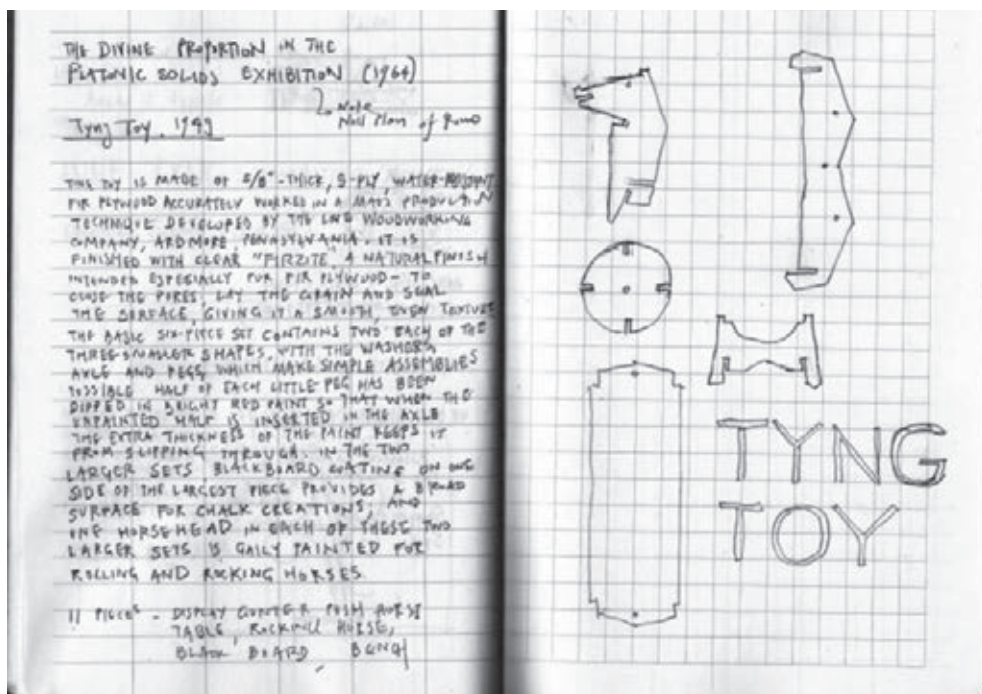 THE DIVINE PROPORTION IN THE
PLATONIC SOLIDS EXHIBITION (1964)
Note
Tyng Toy. 1949
of
THE TOY IS MADE OF 5/8"-THICK, 5-PLY, WATER-RESISTANT
FIR PLYWOOD ACCURATELY WORKED IN A MASS PRODUCTION
TECHNIQUE DEVELOPED BY THE WOODWORKING
COMPANY, ARDMORE, PENNSYLVANIA. IT IS
FINISHED WITH CLEAR "FIRZITE", A NATURAL FINISH
INTENDED ESPECIALLY FOR FIR PLYWOOD - TO
CLOSE THE PORES, LAY THE GRAIN AND SEAL
THE SURFACE, GIVING IT A SMOOTH, EVEN TEXTURE
THE BASIC SIX-PIECE SET CONTAINS TWO EACH OF THE
THREE SMALLER SHAPES, WITH THE WASHERS
AXLE AND PEGS, WHICH MAKE SIMPLE ASSEMBLIES
POSSIBLE. HALF OF EACH LITTLE PEG HAS BEEN
DIPPED IN BRIGHT RED PAINT SO THAT WHEN THE
UNPAINTED HALF IS INSERTED IN THE AXLE
THE EXTRA THICKNESS OF THE PAINT KEEPS IT
FROM SLIPPING THROUGH. IN THE TWO
LARGER SETS BLACKBOARD COATING ON ONE
SIDE OF THE LARGEST PIECE PROVIDES A BROAD
SURFACE FOR CHALK CREATIONS, AND
ONE HORSEHEAD IN EACH OF THESE TWO
LARGER SETS IS GAILY PAINTED FOR
ROLLING AND ROCKING HORSES.
11 PIECES - DISPLAY COUNTER PUSH HORSE
TABLE, HORSE,
BLACK BOARD
TYNG
TOY